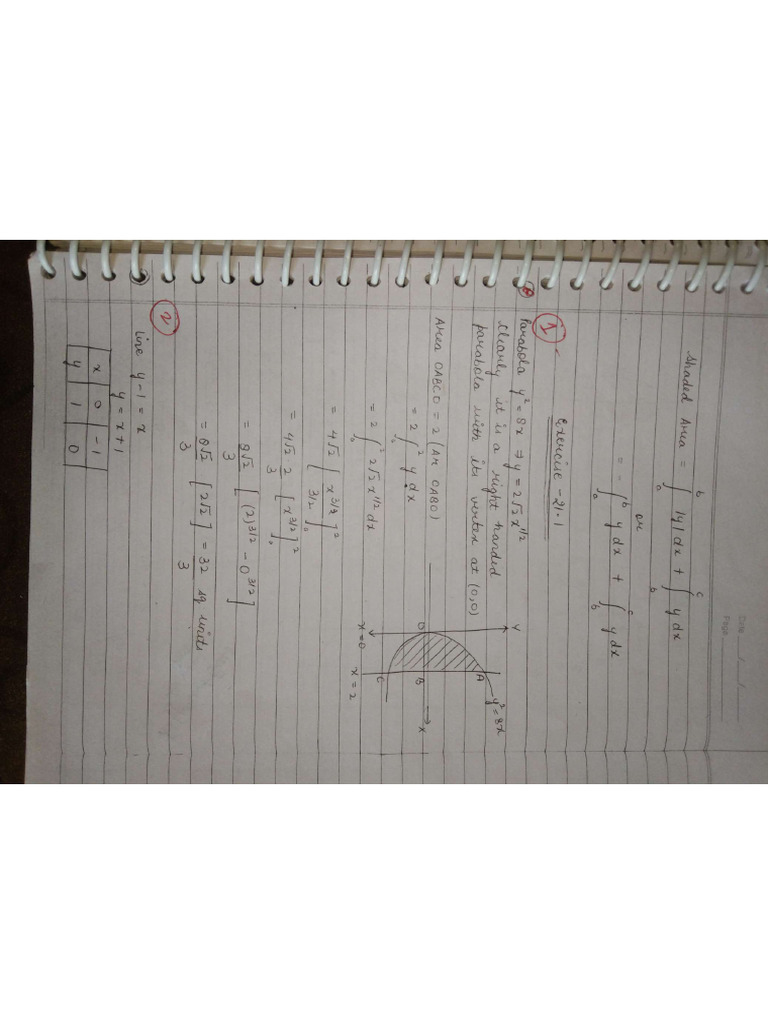 Date __/__/__
Page ____
Shaded Area = ∫_a^b |y| dx + ∫_b^c y dx
or
= - ∫_a^b y dx + ∫_b^c y dx
Exercise - 21.1
1
Parabola y² = 8x ⇒ y = 2√2 x^1/2
Clearly it is a right handed
parabola with its vertex at (0,0)
Area OABCO = 2 (Ar OABO)
= 2 ∫_0^2 y dx
= 2 ∫_0^2 2√2 x^1/2 dx
= 4√2 [x^3/2 / 3/2]_0^2
= 4√2 · 2/3 [x^3/2]_0^2
= 8√2/3 [(2)^3/2 - 0^3/2]
= 8√2/3 [2√2] = 32/3 sq units
Y
y² = 8x
A
O
B
X
C
x = 0
x = 2
2
Line y - 1 = x
y = x + 1
x 0 -1
y 1 0